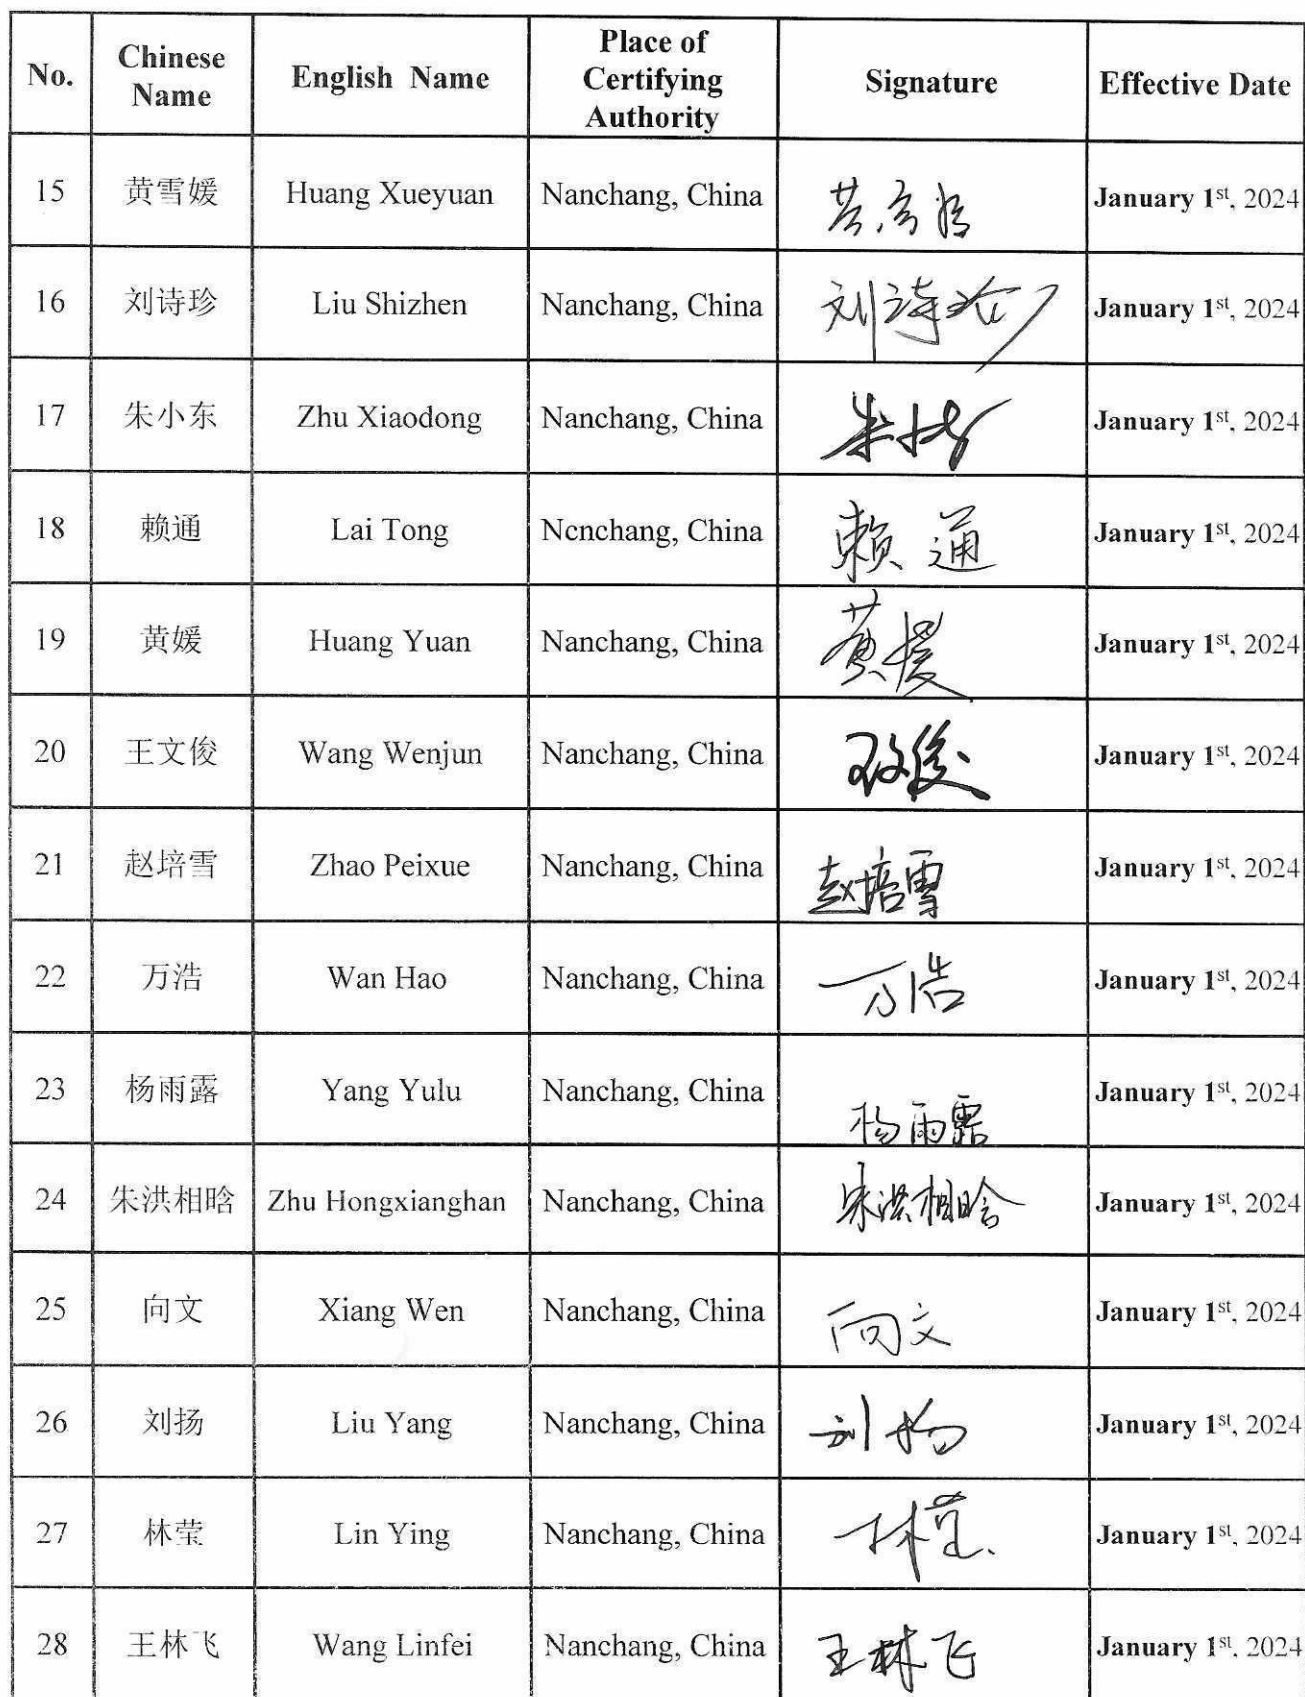 No. Chinese Name English Name Place of Certifying Authority Signature Effective Date
15 黄雪媛 Huang Xueyuan Nanchang, China January 1st, 2024
16 刘诗珍 Liu Shizhen Nanchang, China 刘诗珍 January 1st, 2024
17 朱小东 Zhu Xiaodong Nanchang, China January 1st, 2024
18 赖通 Lai Tong Ncnchang, China 赖通 January 1st, 2024
19 黄媛 Huang Yuan Nanchang, China 黄媛 January 1st, 2024
20 王文俊 Wang Wenjun Nanchang, China 王文俊 January 1st, 2024
21 赵培雪 Zhao Peixue Nanchang, China 赵培雪 January 1st, 2024
22 万浩 Wan Hao Nanchang, China 万浩 January 1st, 2024
23 杨雨露 Yang Yulu Nanchang, China 杨雨露 January 1st, 2024
24 朱洪相晗 Zhu Hongxianghan Nanchang, China 朱洪相晗 January 1st, 2024
25 向文 Xiang Wen Nanchang, China 向文 January 1st, 2024
26 刘扬 Liu Yang Nanchang, China 刘扬 January 1st, 2024
27 林莹 Lin Ying Nanchang, China 林莹 January 1st, 2024
28 王林飞 Wang Linfei Nanchang, China 王林飞 January 1st, 2024